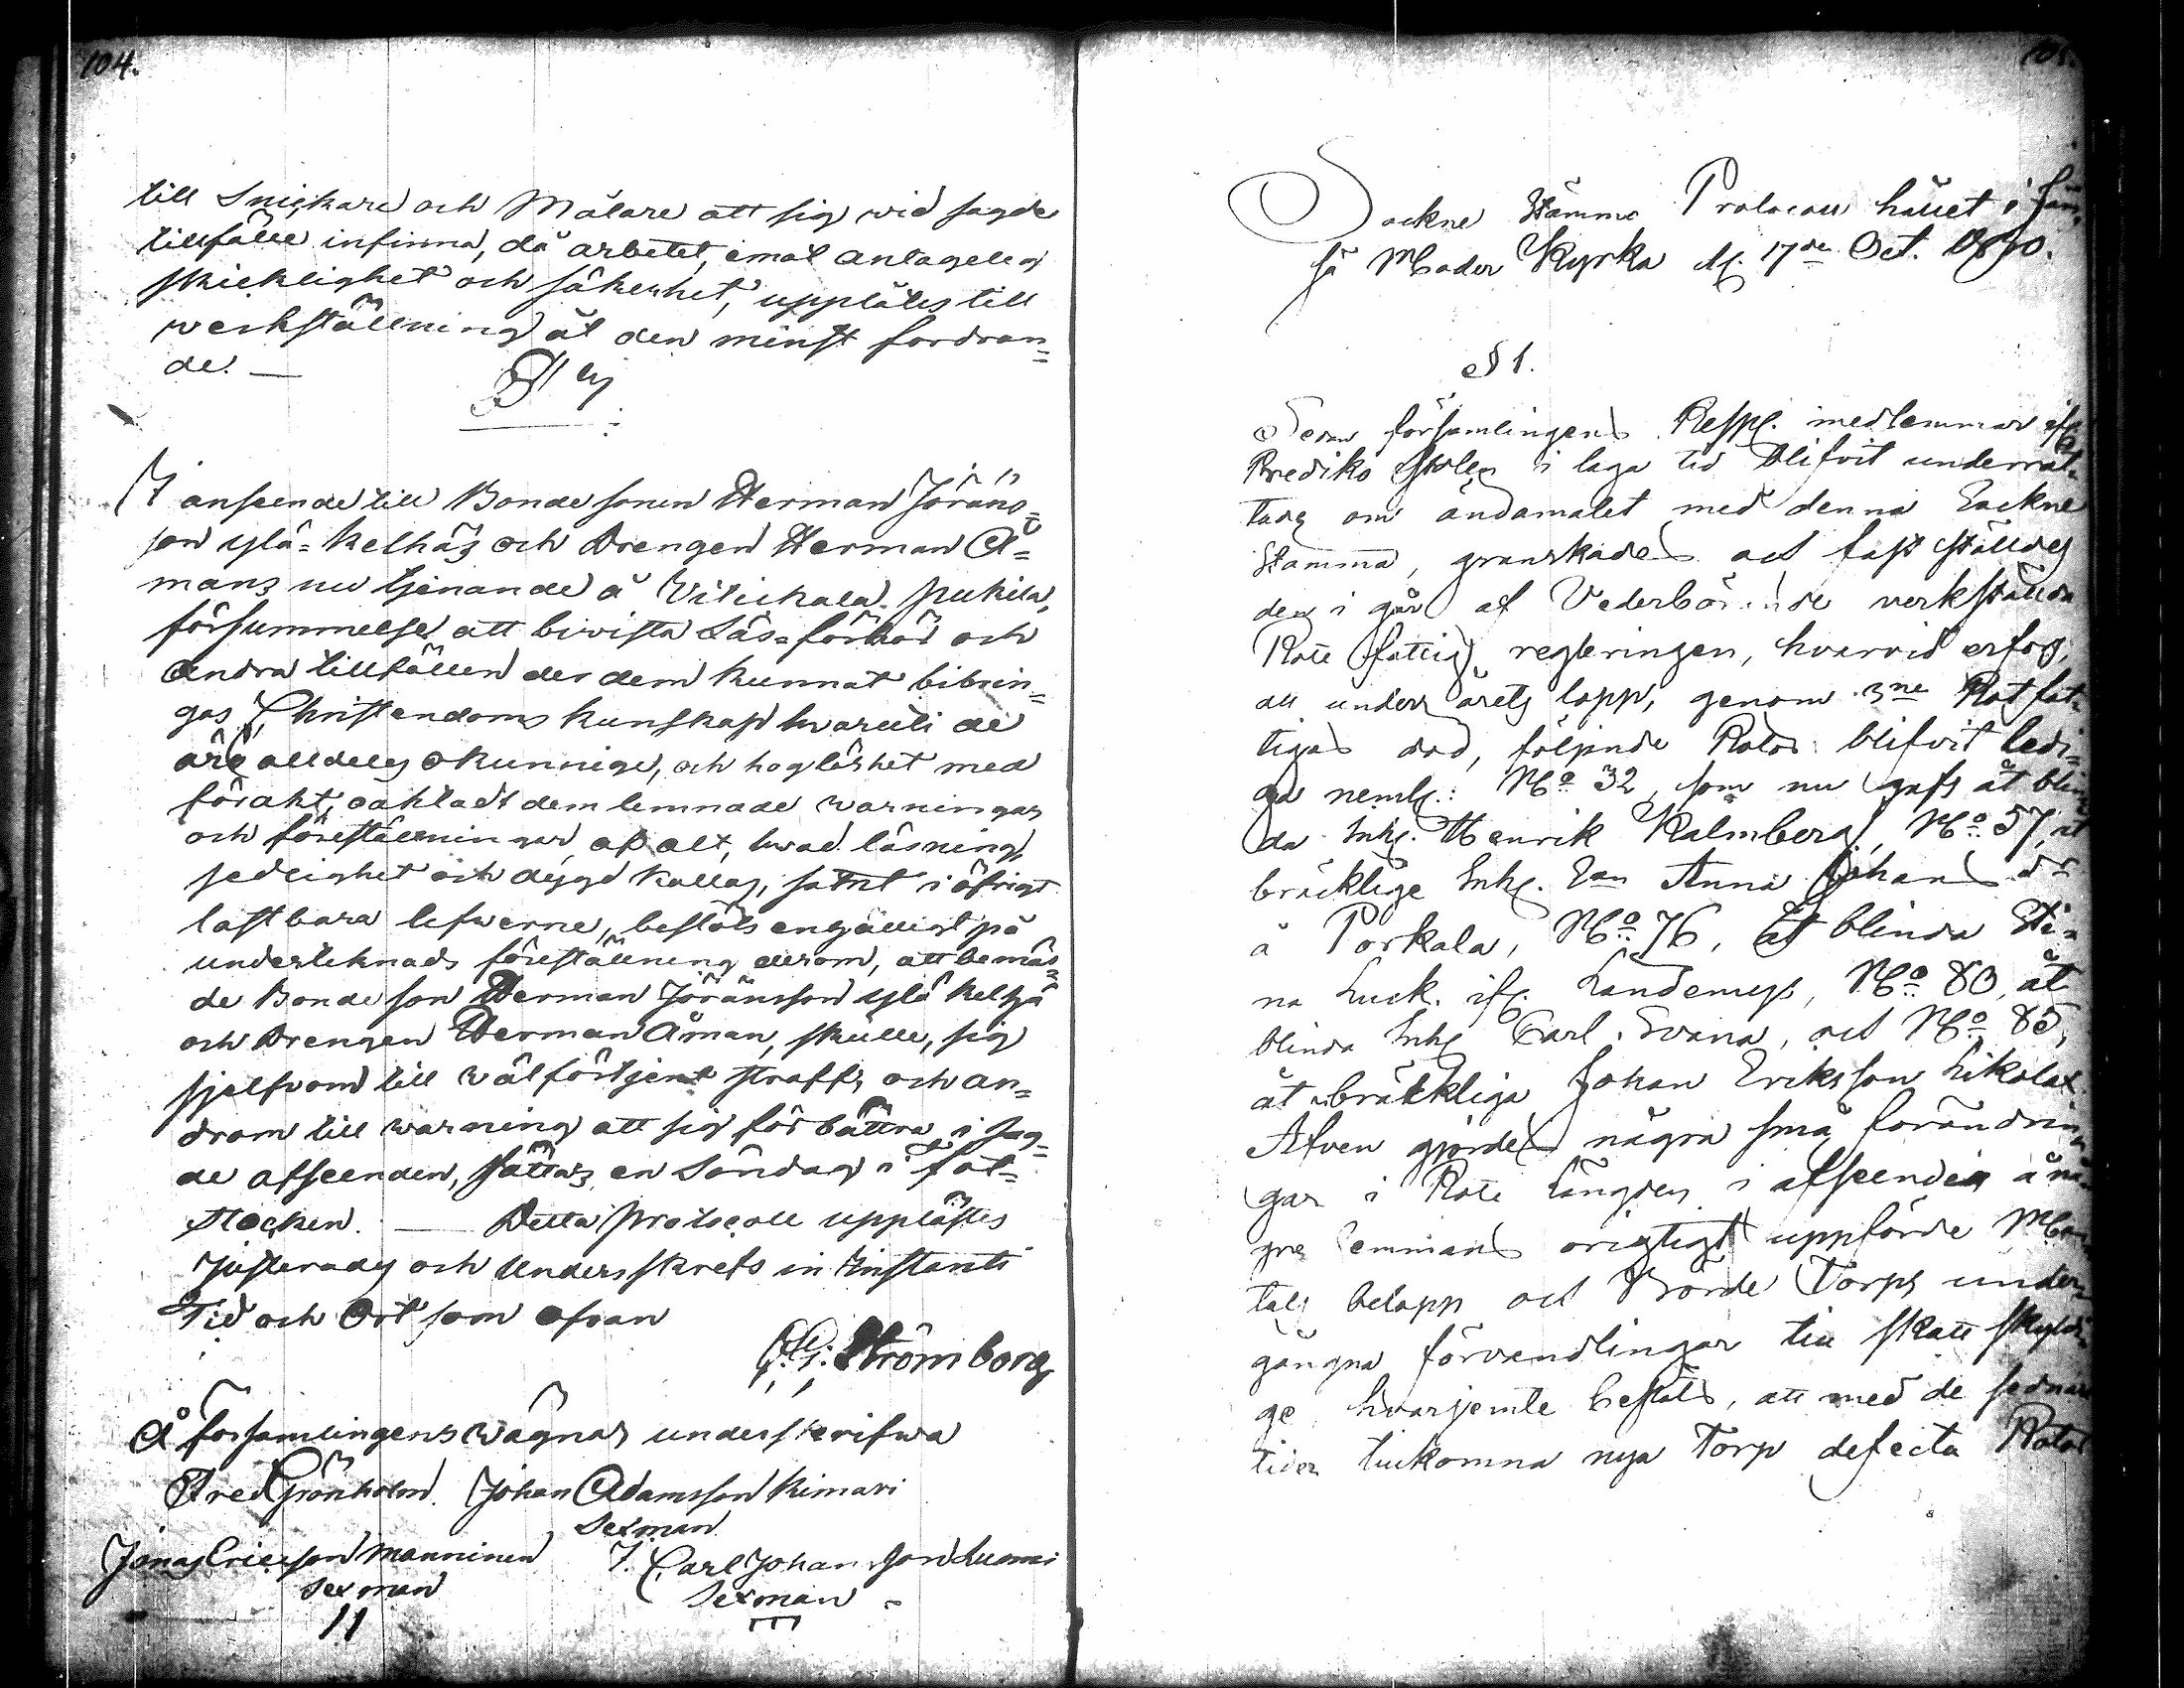 104.
till Snickare och Målare att sig wid sagde
tillfälle infinna, då arbetet, emot antagelig
skicklighet och säkerhet, upplåtes till
werkställning åt den minst fordran=
de. —
§
I anseende till Bonde sonen Herman Jörans=
son ylä=Kelhäs och Drengen Herman Å=
mans nu tjenande å Vitickala
försummelse att biwista Läs=förhör och
andra tillfällen der dem kunnat bibrin=
gas Christendoms kunskap hwaruti de
äre alldeles okunnige, och
förakt, oaktadt dem lemnade warningar
och föreställningar af alt, hwad läsning,
sedlighet och dygd kallas, samt i öfrigt
lastbara lefwerne, beslöts engälligt på
underteknads föreställning derom, att bemäl=
de Bonde son Herman Jöransson ylä Kelhjä
och Drengen Herman Åman, skulle, sig
sjelfvom till wälförtjent straff, och an=
drom till warning att sig förbättra i sag=
de afseenden, sättas en Söndag i fot=
stocken. — Detta Protocoll upplästes
justerades och Underskrefs in Instanti
Tid och Ort som ofvan
Strömborg
Å församlingens wägnar underskrifwa
Fred Grönholm. Johan Adamsson Kimari
Sexman
Jonas Ericsson Manninen J. Carl Johansson Luomi
Sexman Sexman
11
105.
Sockne Stämmo Protocoll hållet i Jäm=
sä Moder Kyrka d. 17de Oct. 1830.
§ 1.
Sedan församlingens Resp. medlemmar ifr
Prediko Stolen i laga tid blifvit underrät=
tade om ändamålet med denna Sockne
Stämma, granskades och fast ställdes
den i går af Vederbörande verkställda
Rote fattig regleringen, hvarvid erfors,
att under årets lopp, genom 3ne Rotfat=
tigas död, följande Rotar blifvit ledi=
ga neml.: No. 32, som nu gafs åt blin=
da Inh. Henrik Kalmberg, No. 57, åt
bräcklige Inh. Anna Johans dr
å Porkala, No. 76, åt blinda Sti=
na Luck. ifr. Landemys, No. 80, åt
blinda Inh. Carl Svana, och No. 85,
åt bräckliga Johan Eriksson Likolat
Äfven gjordes några små förändrin=
gar i Rote Längden i afseende å nå=
gre hemmans origtigt uppförde Man=
tals belopp och Bonde Torps under=
gångna förvandlingar till skatt skyldi=
ge hvarjemte beslöts, att med de sednare
tider tillkomna nya Torp defecta Rotar